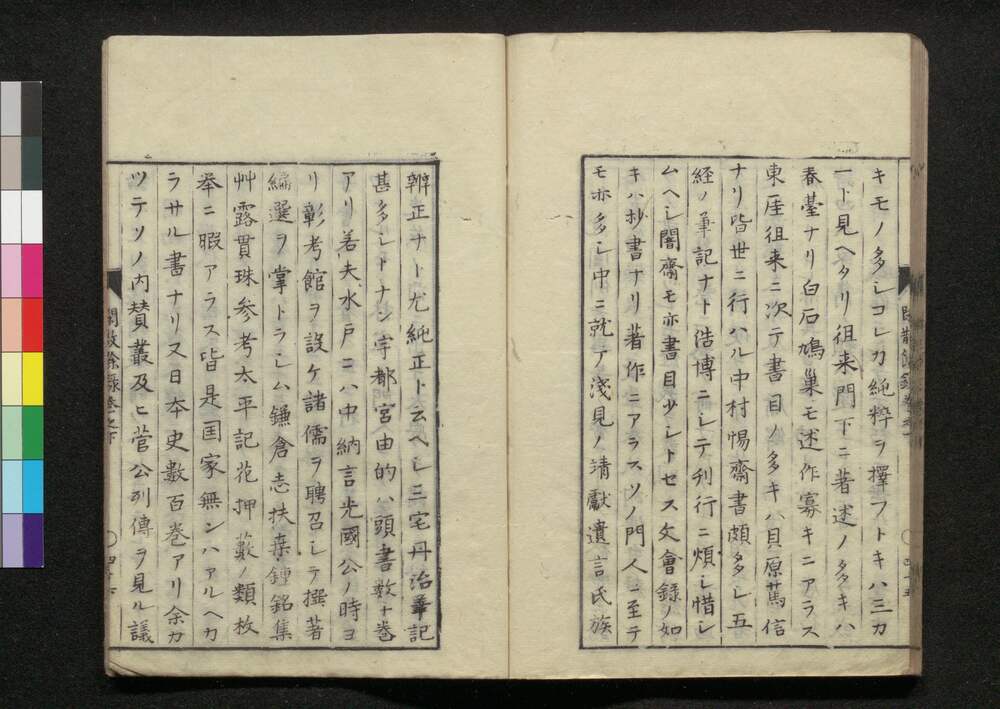 キモノ多シコレカ純粋ヲ擇フトキハ三カ
一ト見ヘタリ徂来門下ニ著述ノ多キハ
春臺ナリ白石鳩巣モ述作寡キニアラス
東厓徂来ニ次テ書目ノ多キハ貝原篤信
ナリ皆世ニ行ハル中村惕齋書頗多シ五
経ノ筆記ナト浩博ニシテ刋行ニ煩シ惜シ
ムヘシ闇齋モ亦書目少シトセス文會録ノ如
キハ抄書ナリ著作ニアラスソノ門人ニ至テ
モ亦多シ中ニ就テ淺見ノ靖獻遺言氏族
辨正ナト尤純正ト云ヘシ三宅丹治筆記
甚多シトナン宇都宮由的ハ頭書数十巻
アリ若夫水戸ニハ中納言光國公ノ時ヨ
リ彰考館ヲ設ケ諸儒ヲ聘召シテ撰著
編選ヲ掌トラシム鎌倉志扶桒鐘銘集
艸露貫珠参考太平記花押藪ノ類枚
挙ニ暇アラス皆是国家無ンハアルヘカ
ラサル書ナリ又日本史数百巻アリ余カ
ツテソノ内賛叢及ヒ菅公列傳ヲ見ル議
閑散餘録巻之下